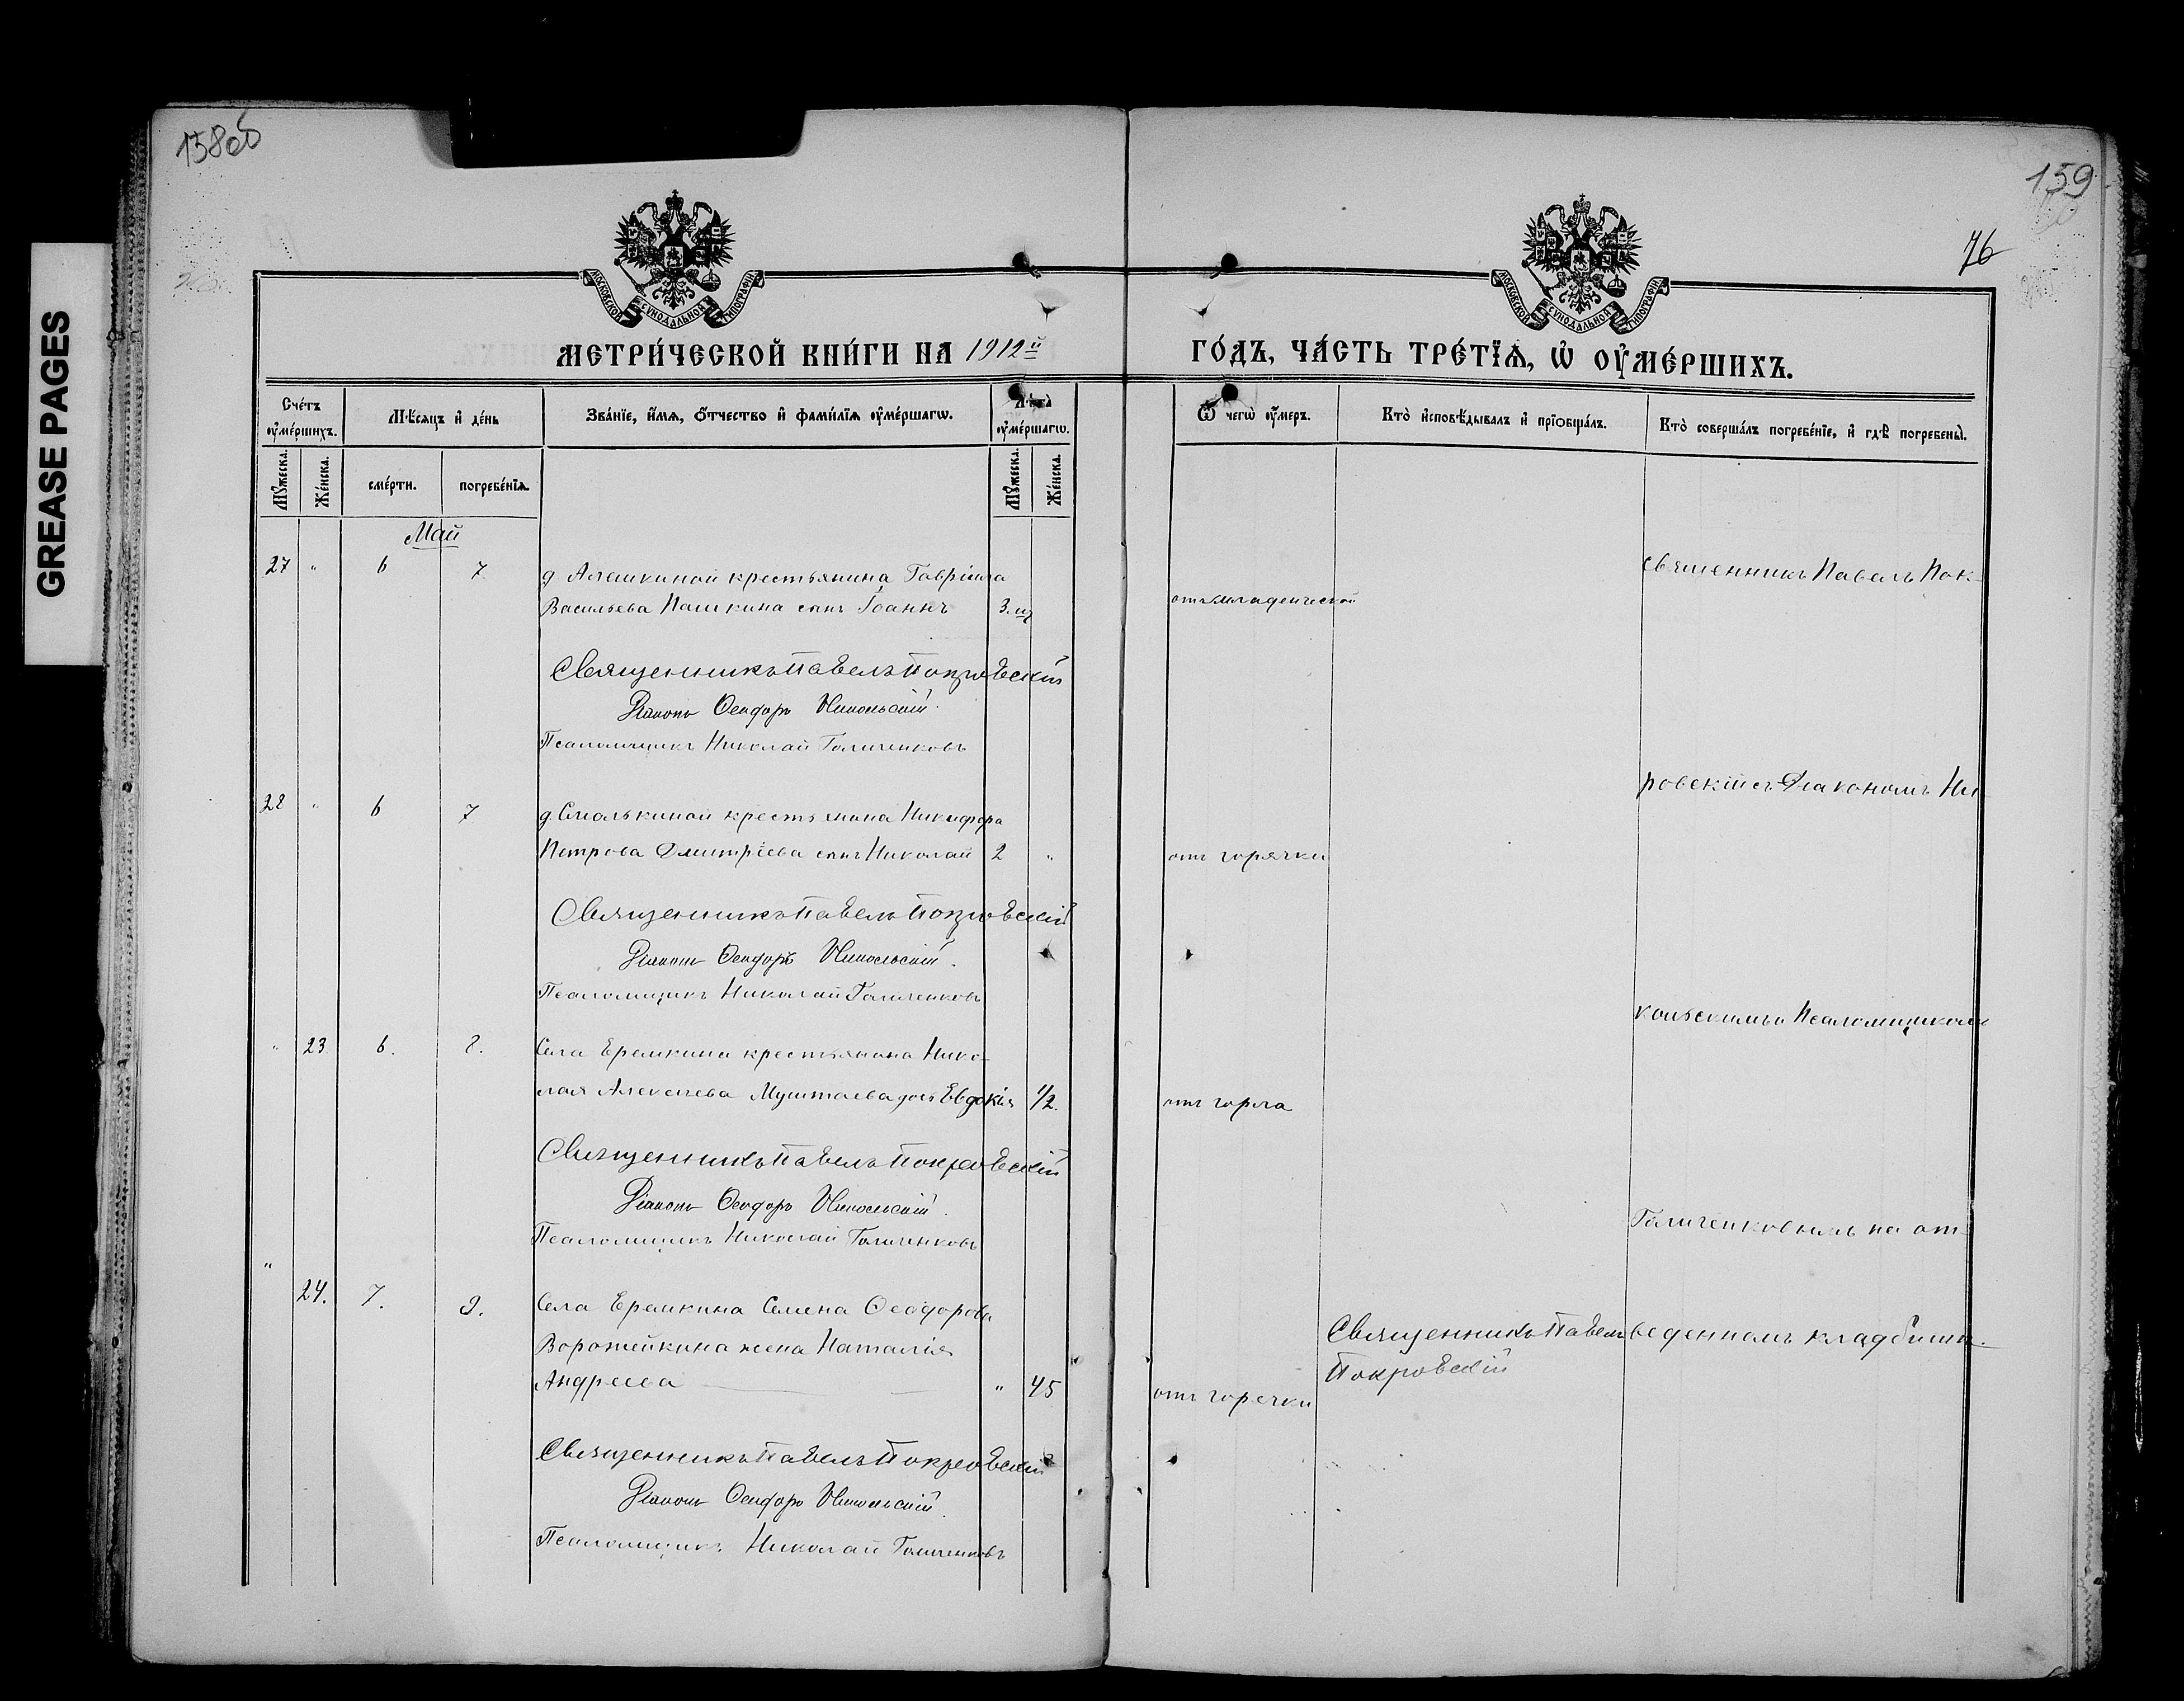 158об
159
76
GREASE PAGES
МОСКОВСКОЙ СѴНОДАЛЬНОЙ ТИПОГРАФІИ
МОСКОВСКОЙ СѴНОДАЛЬНОЙ ТИПОГРАФІИ
МЕТРИ́ЧЕСКОЙ КНИ́ГИ НА 1912й ГО́ДЪ, ЧА́СТЬ ТРЕ́ТЇѦ, Ѡ҆ ОУ҆МЕ́РШИХЪ.
Сче́тъ оу҆ме́ршихъ.
Мѣ́сяцъ и҆ де́нь
Зва́нїе, и҆́мѧ, ѻ҆́тчество и҆ фами́лїѧ оу҆ме́ршагѡ.
Лѣта̀ оу҆ме́ршагѡ.
Ѿ чегѡ̀ оу҆́меръ.
Кто̀ и҆сповѣ́дывалъ и҆ прїѻбща́лъ.
Кто̀ соверша́лъ погребе́нїе, и҆ гдѣ̀ погребены̀.
Му́жеска.
Же́нска.
сме́рти.
погребе́нїѧ.
Му́жеска.
Же́нска.
Май
27 " 6 7 д Алешкиной крестьянина Гавріила
Васильева Пашкина сынъ Іоаннъ 3 мц отъ младенческой
Священникъ Павелъ Пок-
Священникъ Павелъ Покровскій
Діаконъ Ѳеодоръ Никольскій.
Псаломщикъ Николай Галиченковъ
28 " 6 7 д. Смолькиной крестьянина Никифора
Петрова Дмитріева сынъ Николай 2 " отъ горячки
ровскій съ Діакономъ Ни-
Священникъ Павелъ Покровскій
Діаконъ Ѳеодоръ Никольскій.
Псаломщикъ Николай Галиченковъ
" 23 6. 8. Села Еремкина крестьянина Нико-
лая Алексеева Муштаева дочь Евдокія 1/2. отъ горла
кольскимъ и Псаломщикомъ
Священникъ Павелъ Покровскій
Діаконъ Ѳеодоръ Никольскій.
Псаломщикъ Николай Галиченковъ
Галиченковымъ на от-
" 24. 7. 9. Села Еремкина Семена Ѳеодорова
Ворожейкина жена Наталія
Андреева " 45 отъ горячки
Священникъ Павелъ
Покровскій
веденномъ кладбищѣ.
Священникъ Павелъ Покровскій
Діаконъ Ѳеодоръ Никольскій.
Псаломщикъ Николай Галиченковъ